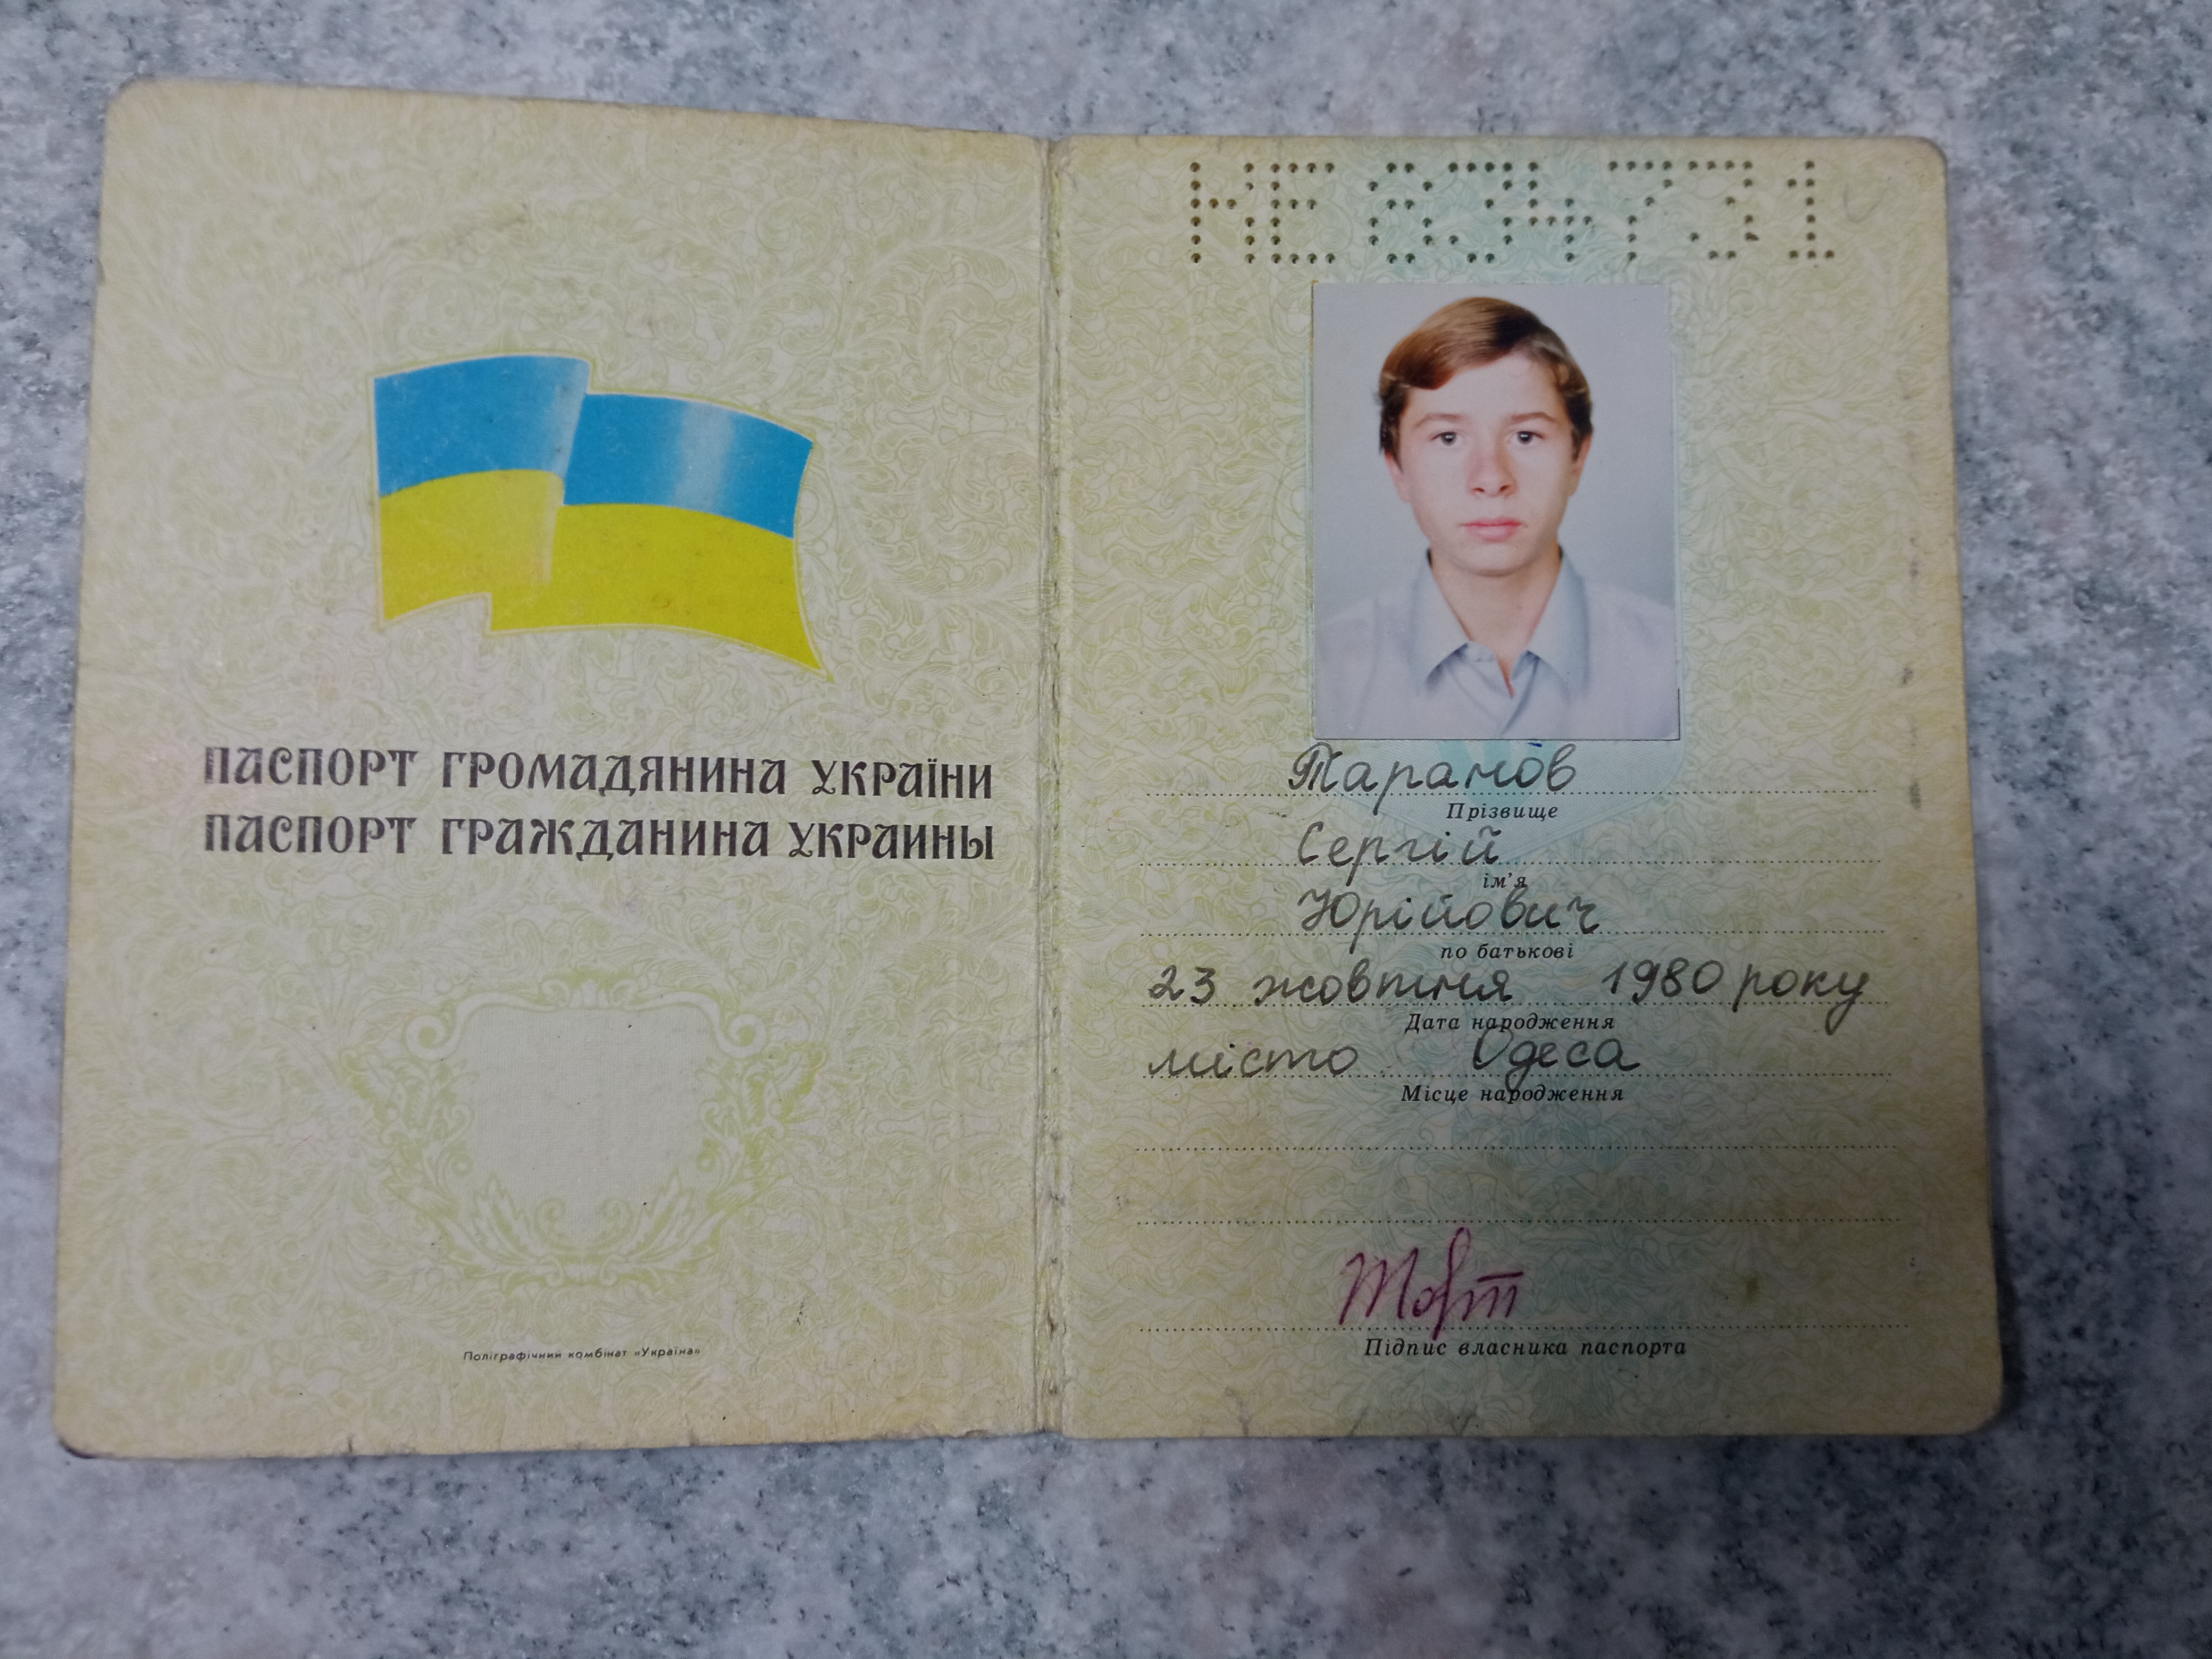 ПАСПОРТ ГРОМАДЯНИНА УКРАЇНИ
ПАСПОРТ ГРАЖДАНИНА УКРАИНЫ
Поліграфічний комбінат «Україна»
Таранов
Прізвище
Сергій
ім'я
Юрійович
по батькові
23 жовтня 1980 року
Дата народження
місто Одеса
Місце народження
Підпис власника паспорта